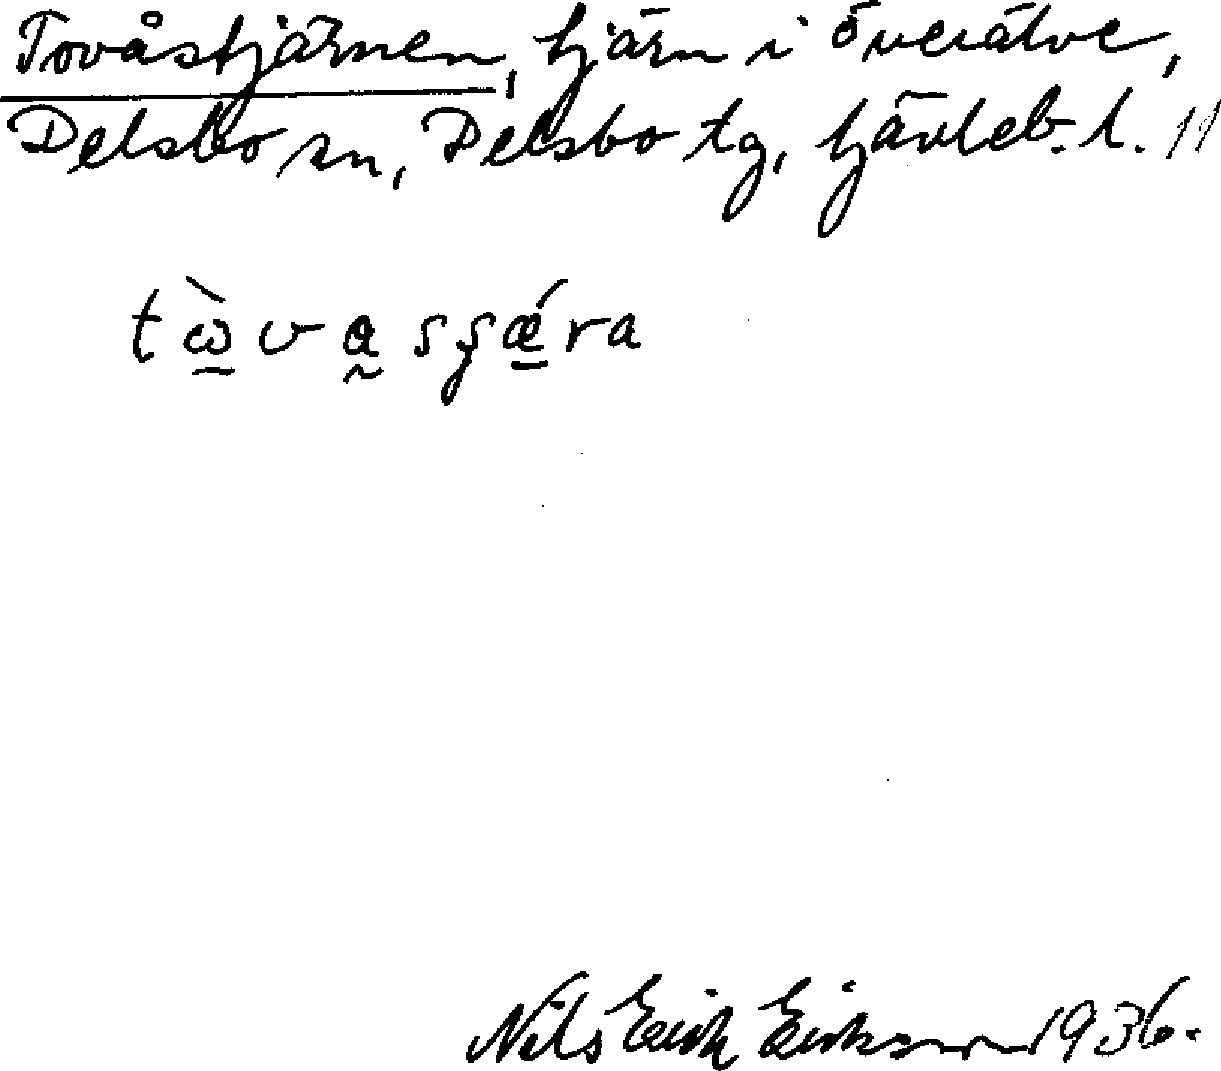 Tovåstjärnen, tjärn i Överälve,
Delsbo sn, Delsbo tg, Gävleb. l. 11
tὼ̲va̰sʂǽ̲ra
Nils Erik Eriksson 1936.